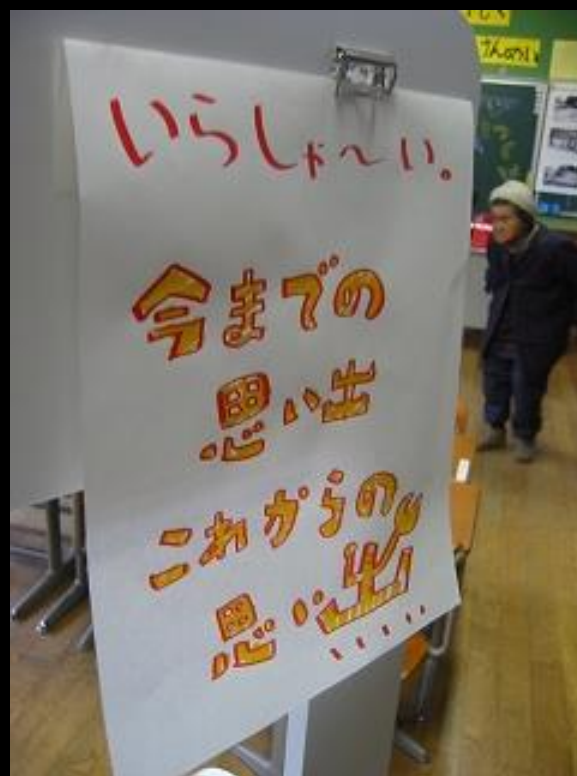 いらしゃ〜い。
今までの
思い出
これからの
思い出